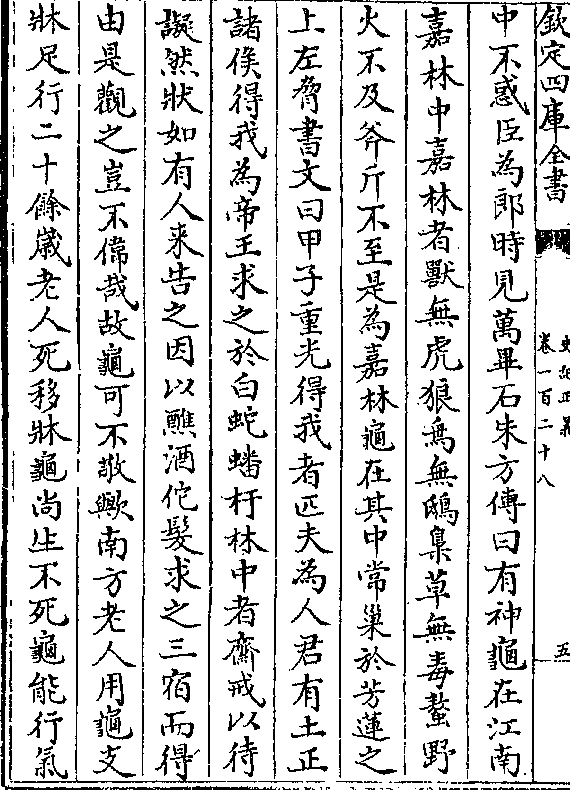 欽定四庫全書
史記正義
卷一百二十八
五
中不惑臣為郎時見萬畢石朱方傳曰有神龜在江南
嘉林中嘉林者獸無虎狼鳥無鴟梟草無毒螫野
火不及斧斤不至是為嘉林龜在其中常巢於芳蓮之
上左脅書文曰甲子重光得我者匹夫為人君有土正
諸侯得我為帝王求之於白蛇蟠杅林中者齋戒以待
譺然狀如有人来告之因以醮酒佗髮求之三宿而得
由是觀之豈不偉哉故龜可不敬歟南方老人用龜支
牀足行二十餘歲老人死移牀龜尚生不死龜能行氣